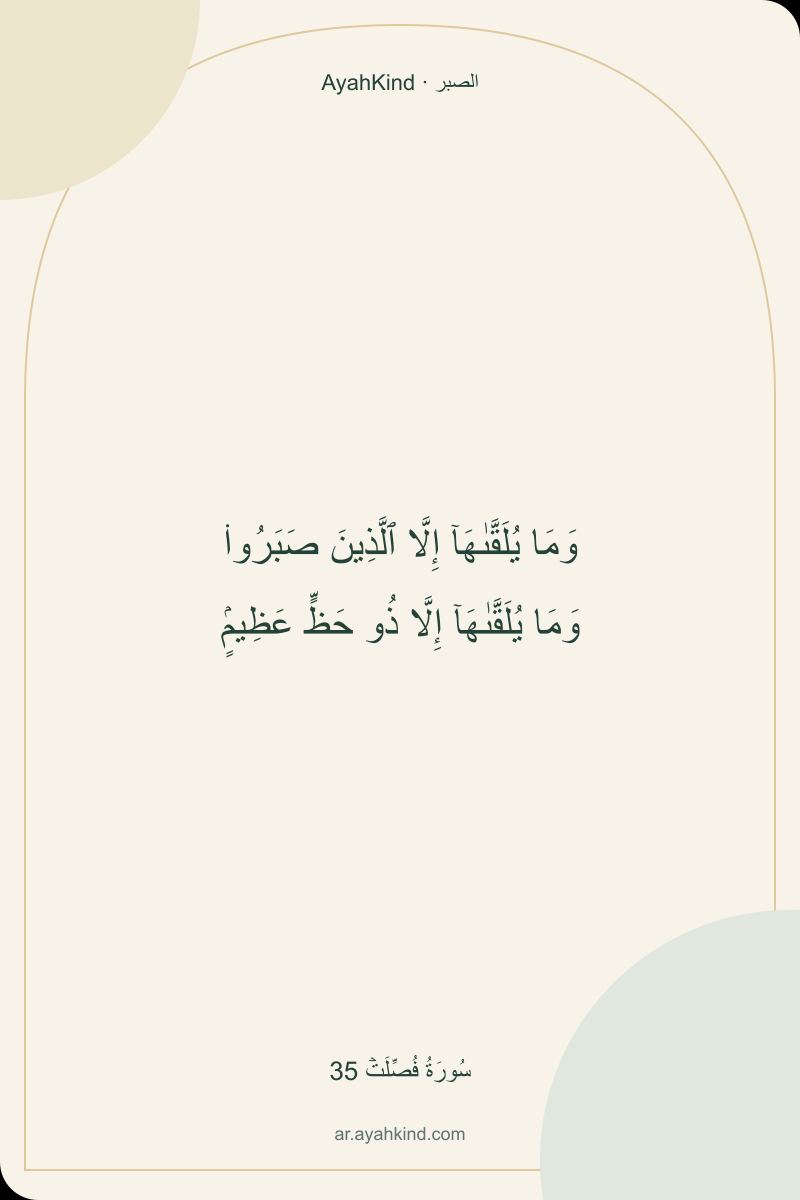 AyahKind · الصبر
وَمَا يُلَقَّىٰهَآ إِلَّا ٱلَّذِينَ صَبَرُوا۟
وَمَا يُلَقَّىٰهَآ إِلَّا ذُو حَظٍّ عَظِيمٍۢ
سُورَةُ فُصِّلَتۡ 35
ar.ayahkind.com